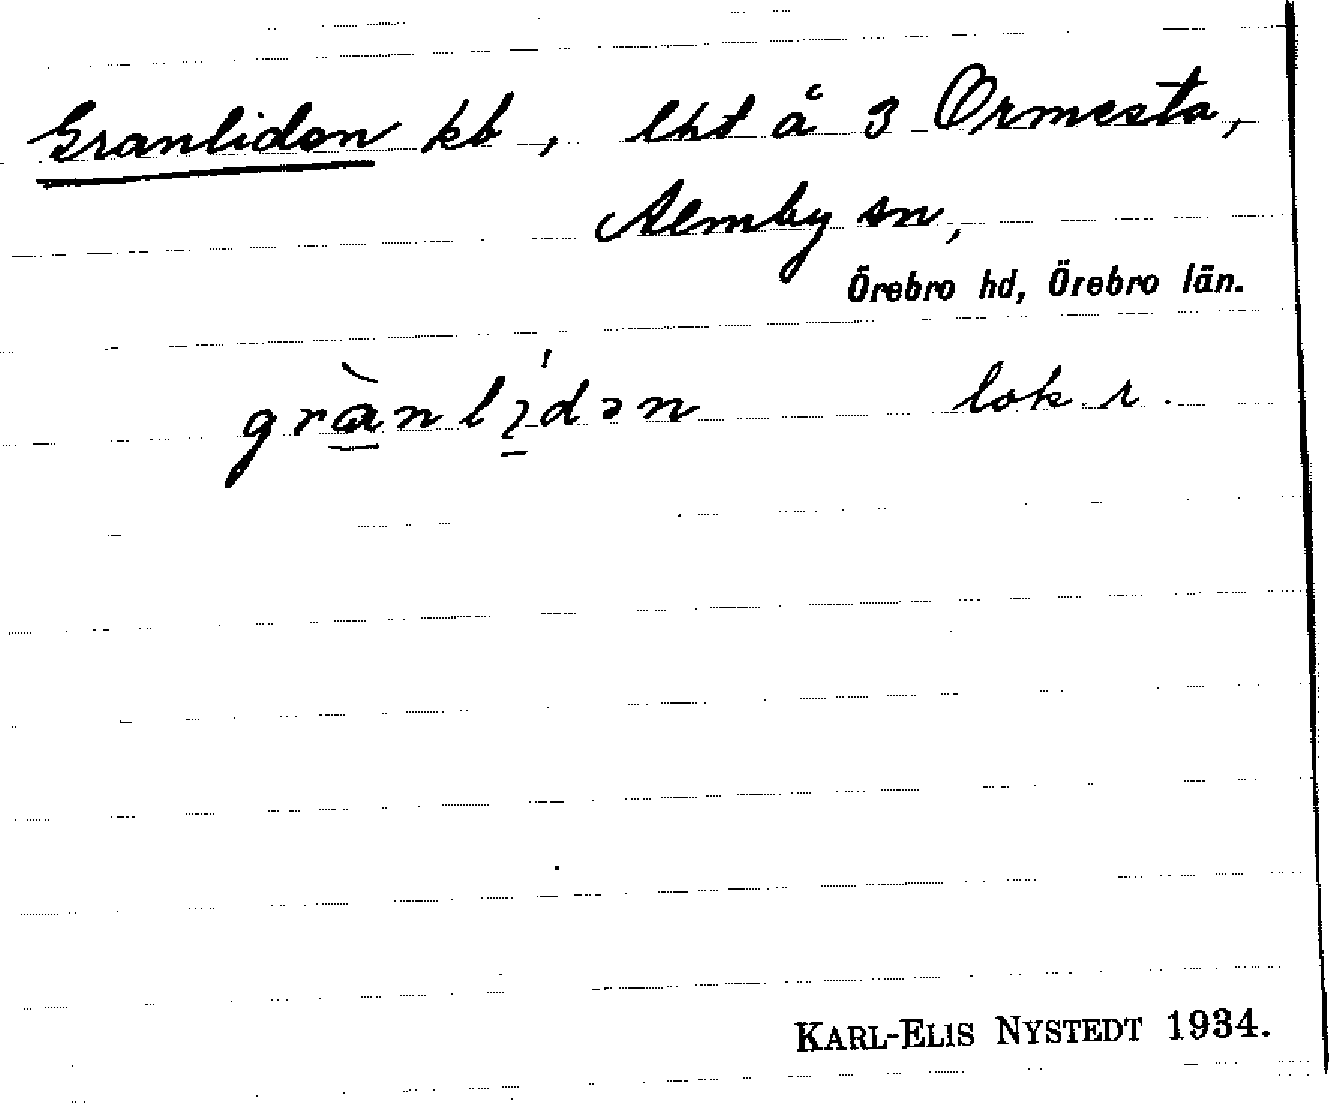 Granliden kb, lht å 3 Ormesta,
Almby sn,
Örebro hd, Örebro län.
lok r.
KARL-ELIS NYSTEDT 1934.